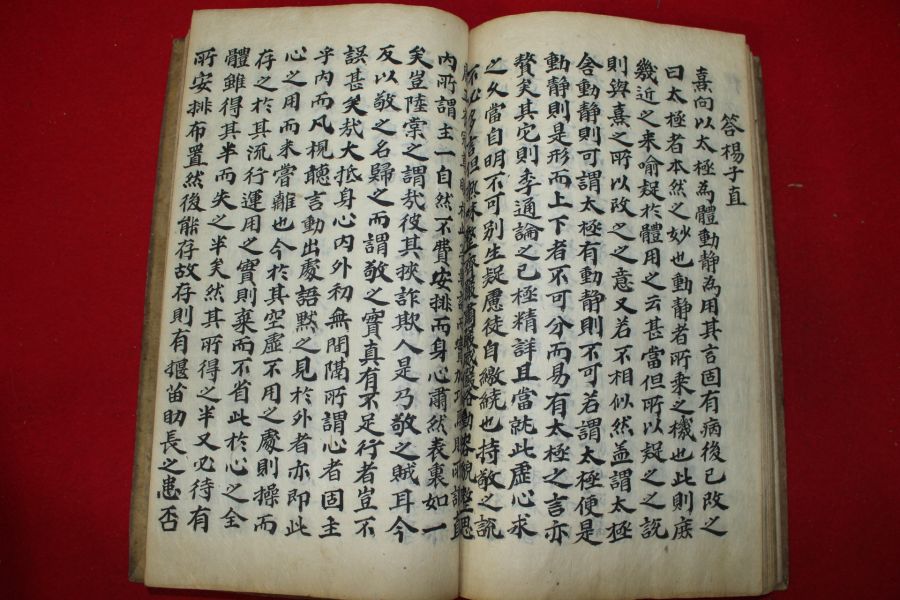 答楊子直
熹向以太極為體動靜為用其言固有病後已改之
曰太極者本然之妙也動靜者所乘之機也此則庶
幾近之来喻疑於體用之云甚當但所以疑之之説
則與熹之所以改之之意又若不相似然盖謂太極
含動靜則可謂太極有動靜則不可若謂太極便是
動靜則是形而上下者不可分而易有太極之言亦
贅矣其它則季通論之已極精詳且當就此虛心求
之久當自明不可別生疑慮徒自繳繞也持敬之説
不必多言但熟味整齊嚴肅嚴威儼恪動容貌整思
加功則所謂直
內所謂主一自然不費安排而身心肅然表裏如一
矣豈陸棠之謂哉彼其挾詐欺人是乃敬之賊耳今
反以敬之名歸之而謂敬之實真有不足行者豈不
誤甚矣哉大抵身心內外初無間隔所謂心者固主
乎內而凡視聽言動出處語默之見於外者亦即此
心之用而未嘗離也今於其空虛不用之處則操而
存之於其流行運用之實則棄而不省此於心之全
體雖得其半而失之半矣然其所得之半又必待有
所安排布置然後能存故存則有揠苗助長之患否